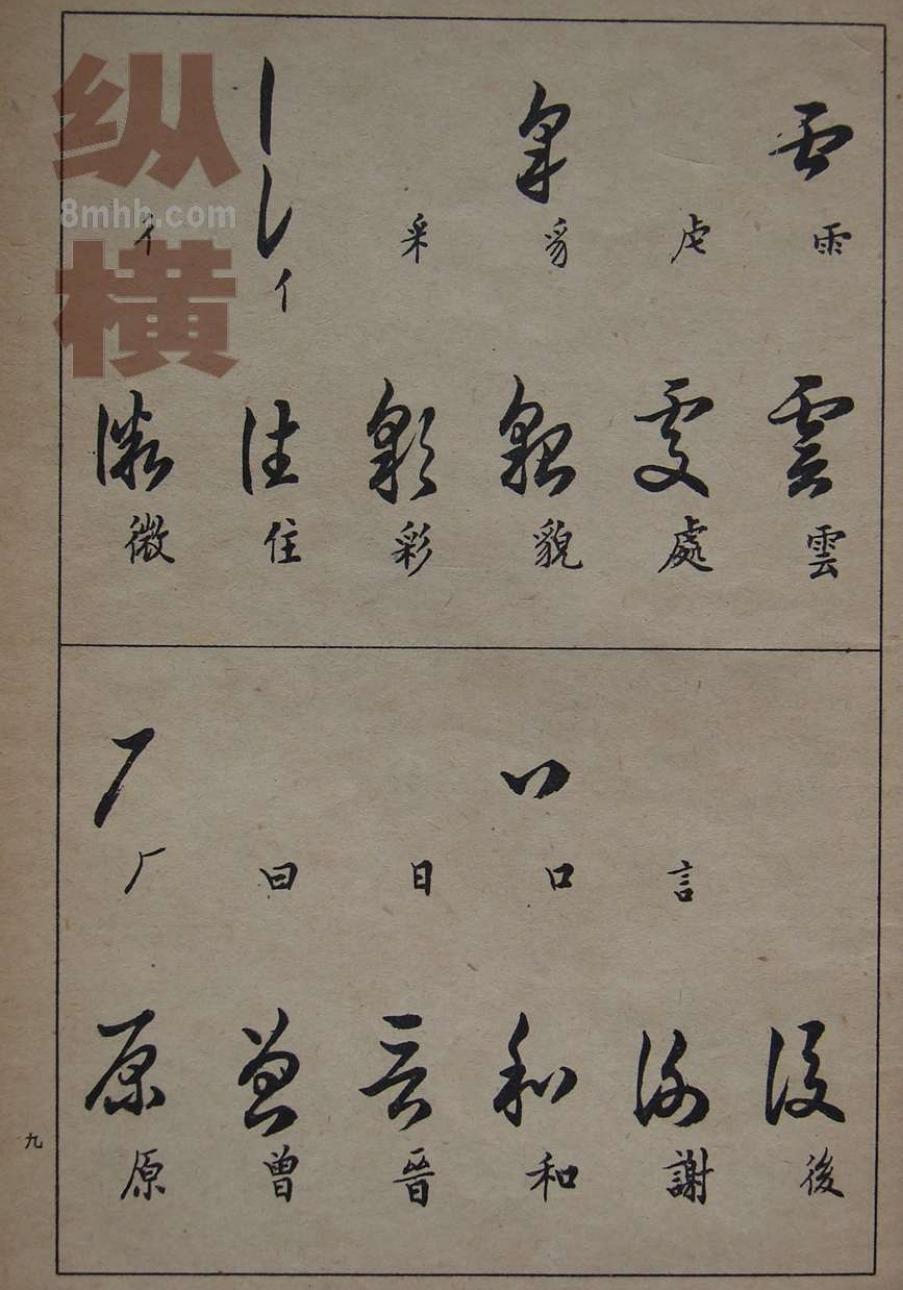 纵横
8mhh.com
雨 虍 豸 釆 亻 彳
雲 處 貌 彩 住 微
言 口 日 曰 厂
後 謝 和 晉 曾 原
九